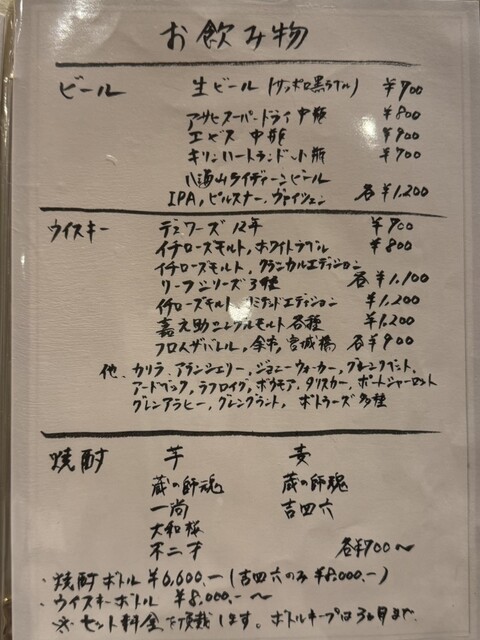 お飲み物
ビール 生ビール(サッポロ黒ラベル) ¥700
アサヒスーパードライ 中瓶 ¥800
エビス 中瓶 ¥900
キリンハートランド小瓶 ¥700
八海山ライディーンビール
IPA, ピルスナー, ヴァイツェン 各¥1,200
ウイスキー デュワーズ 12年 ¥700
イチローズモルト, ホワイトラベル ¥800
イチローズモルト, クラシカルエディション
リーフシリーズ3種 各¥1,100
イチローズモルト, リミテッドエディション ¥1,200
嘉之助シングルモルト各種 ¥1,200
フロムザバレル, 余市, 宮城峡 各¥900
他、カリラ, アランシェリー, ジョニーウォーカー, グレンリベット,
アードベック, ラフロイグ, ボウモア, タリスカー, ポートシャーロット
グレンアラヒー, グレングラント, ボトラーズ多種
焼酎 芋 麦
蔵の師魂 蔵の師魂
一尚 吉四六
大和桜
不二才 各¥700〜
・焼酎ボトル ¥6,600.―(吉四六のみ¥8,000.―)
・ウイスキーボトル ¥8,000.―〜
※ セット料金を頂戴します。ボトルキープは3ヶ月まで.